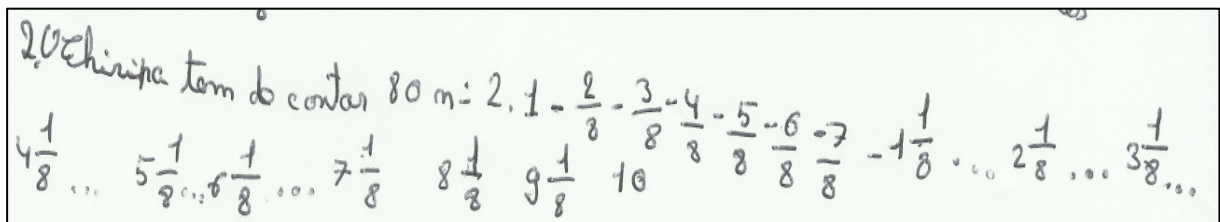 2. O Chiripa tem do contar 80 n: 2. 1 - 2/8 - 3/8 - 4/8 - 5/8 - 6/8 - 7/8 - 1 1/8 ... 2 1/8 ... 3 1/8 ...
4 1/8 ... 5 1/8 ... 6 1/8 ... 7 1/8 8 1/8 9 1/8 10